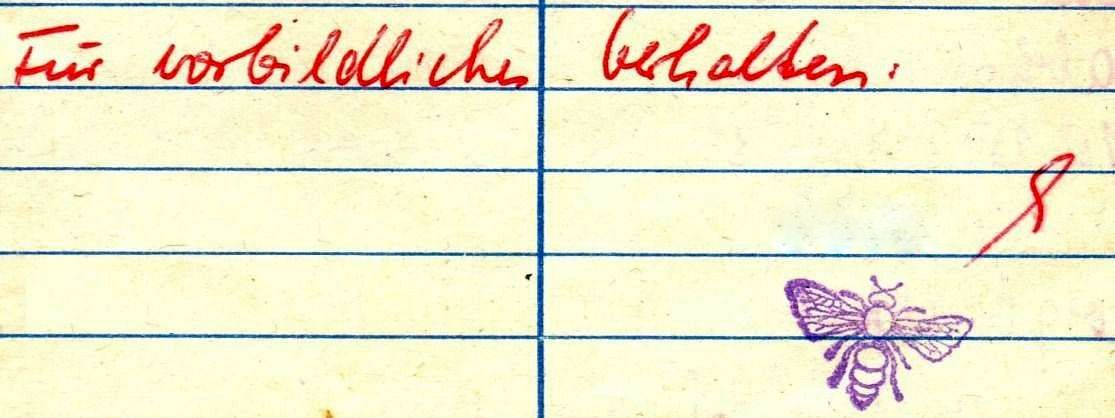 Für vorbildliches Verhalten.